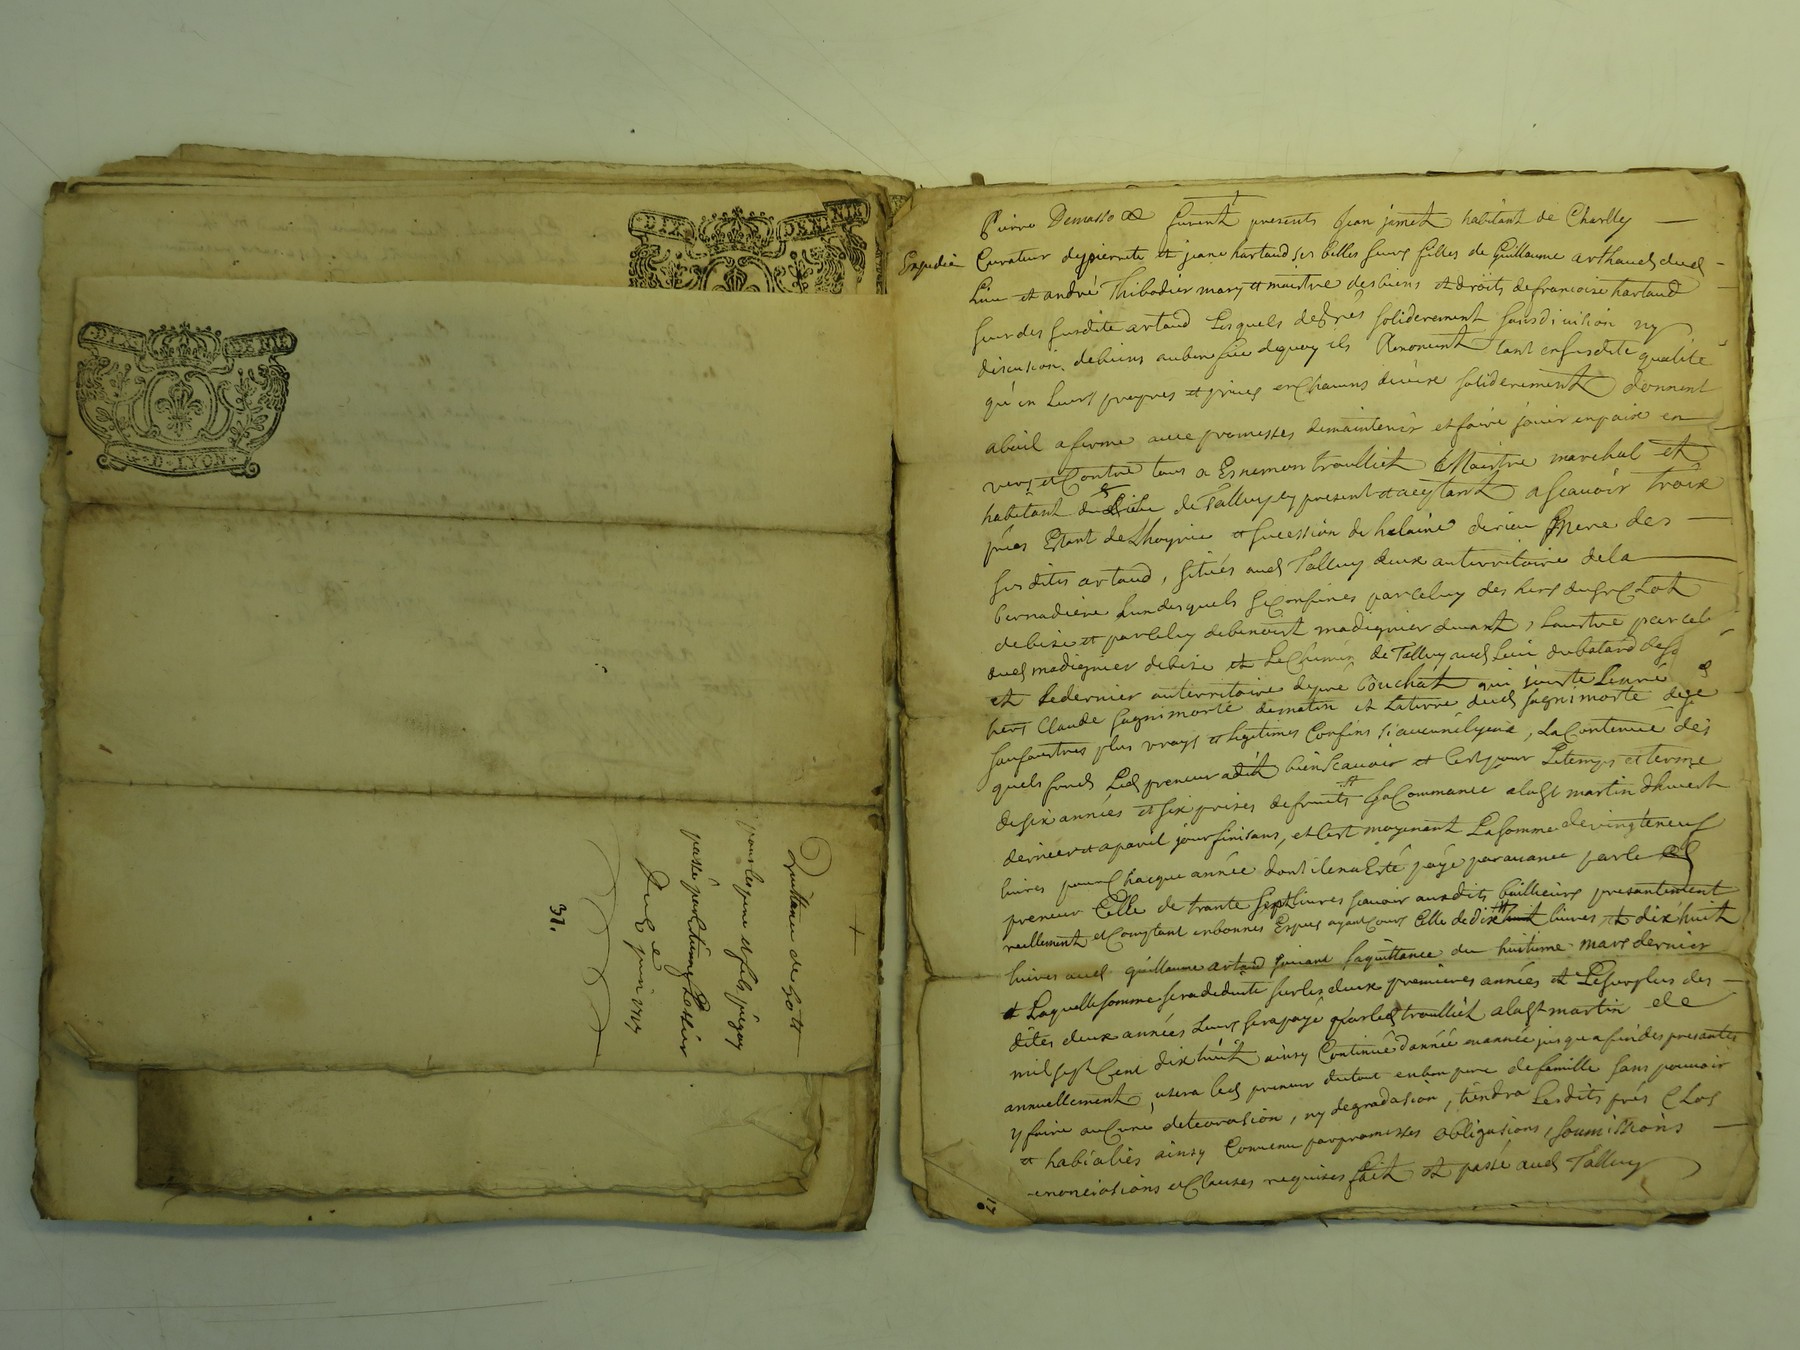 DIX DENIE
DIX DX NIE
G. D. LYON
Quittance de 50 tt
pour les pere et fils pegay
passé par etienne
Du 6e juin 1717
31.
Pierre Demasso furent presents Jean jimet habitant de Charlly
Expedié Curateur de pierrette et jeane hartaud ses belles seurs filles de Guillaume arthaud dud
Lieu et andré Thibodier mary et maistre des biens et droits de francoise hartaud
seur des susdite artaud Lesquels de grés soliderement sans division ny
discusion de biens au benefice de quoy ils Renoncent tant en susdite qualité
qu'en Leurs propres et privés en Chacuns d'eux soliderement donnent
a bail a ferme avec promesses de maintenir et faire jouir en paix en
vers et Contre tous a Enemon troulliet Maistre marchal et
habitant de Talluy present et aceptant a Scavoir trois
prés Estant de Lhoyrie et sucession de helaine derieu mere des
susdites artaud, situés aud Talluy deux au territoire de la
bernadiere Lun desquels se Confines par Celuy des hers du Sr Clot
de bise et par Celuy de benoist madignier de vant, Lautre par cel
dud madignier de bise et Le Chemin de Talluy aud Lieu du batard de so
et Le dernier au territoire de pre bouchat qui jouste
hers Claude sagnimorte de matin et La terre dud sagnimorte de
sauf autres plus vrays et legitimes Confins si aucun il y a, La Contenue des
quels fonds Led preneur a dit bien Scavoir et C'est pour Le temps et terme
de six années et six prises de fruits tt sa Commance a la St martin dhivert
dernier et a pareil jour finisans, et C'est moyenant La somme de vingt neuf
livres pour Chacque année dont il en a Esté payé par avance par le
preneur Celle de trante sept livres scavoir aux dits bailleurs presantement
reellement et Comptant en bonnes Especes ayant Cours Celle de dix neuf livres et dix huit
livres aud guillaume artaud suivant sa quittance du huitieme mars dernier
Laquelle somme sera deduite sur les deux premieres années et Le surplus des
dites deux années Leurs sera payé par led troulliet a la St martin de
mil sept Cent dix huit ainsy Continué d'année en année jusqu'a fin des presantes
annuellement, usera led preneur du tout en bon pere de famille sans pouvoir
y faire aucune deteorasion, ny degradasion, tiendra Lesdits prés Clos
et habialiés ainsy Convenu par promesses obligasions, soumissions
renonciasions et Clauses requises fait et passé aud Talluy
17